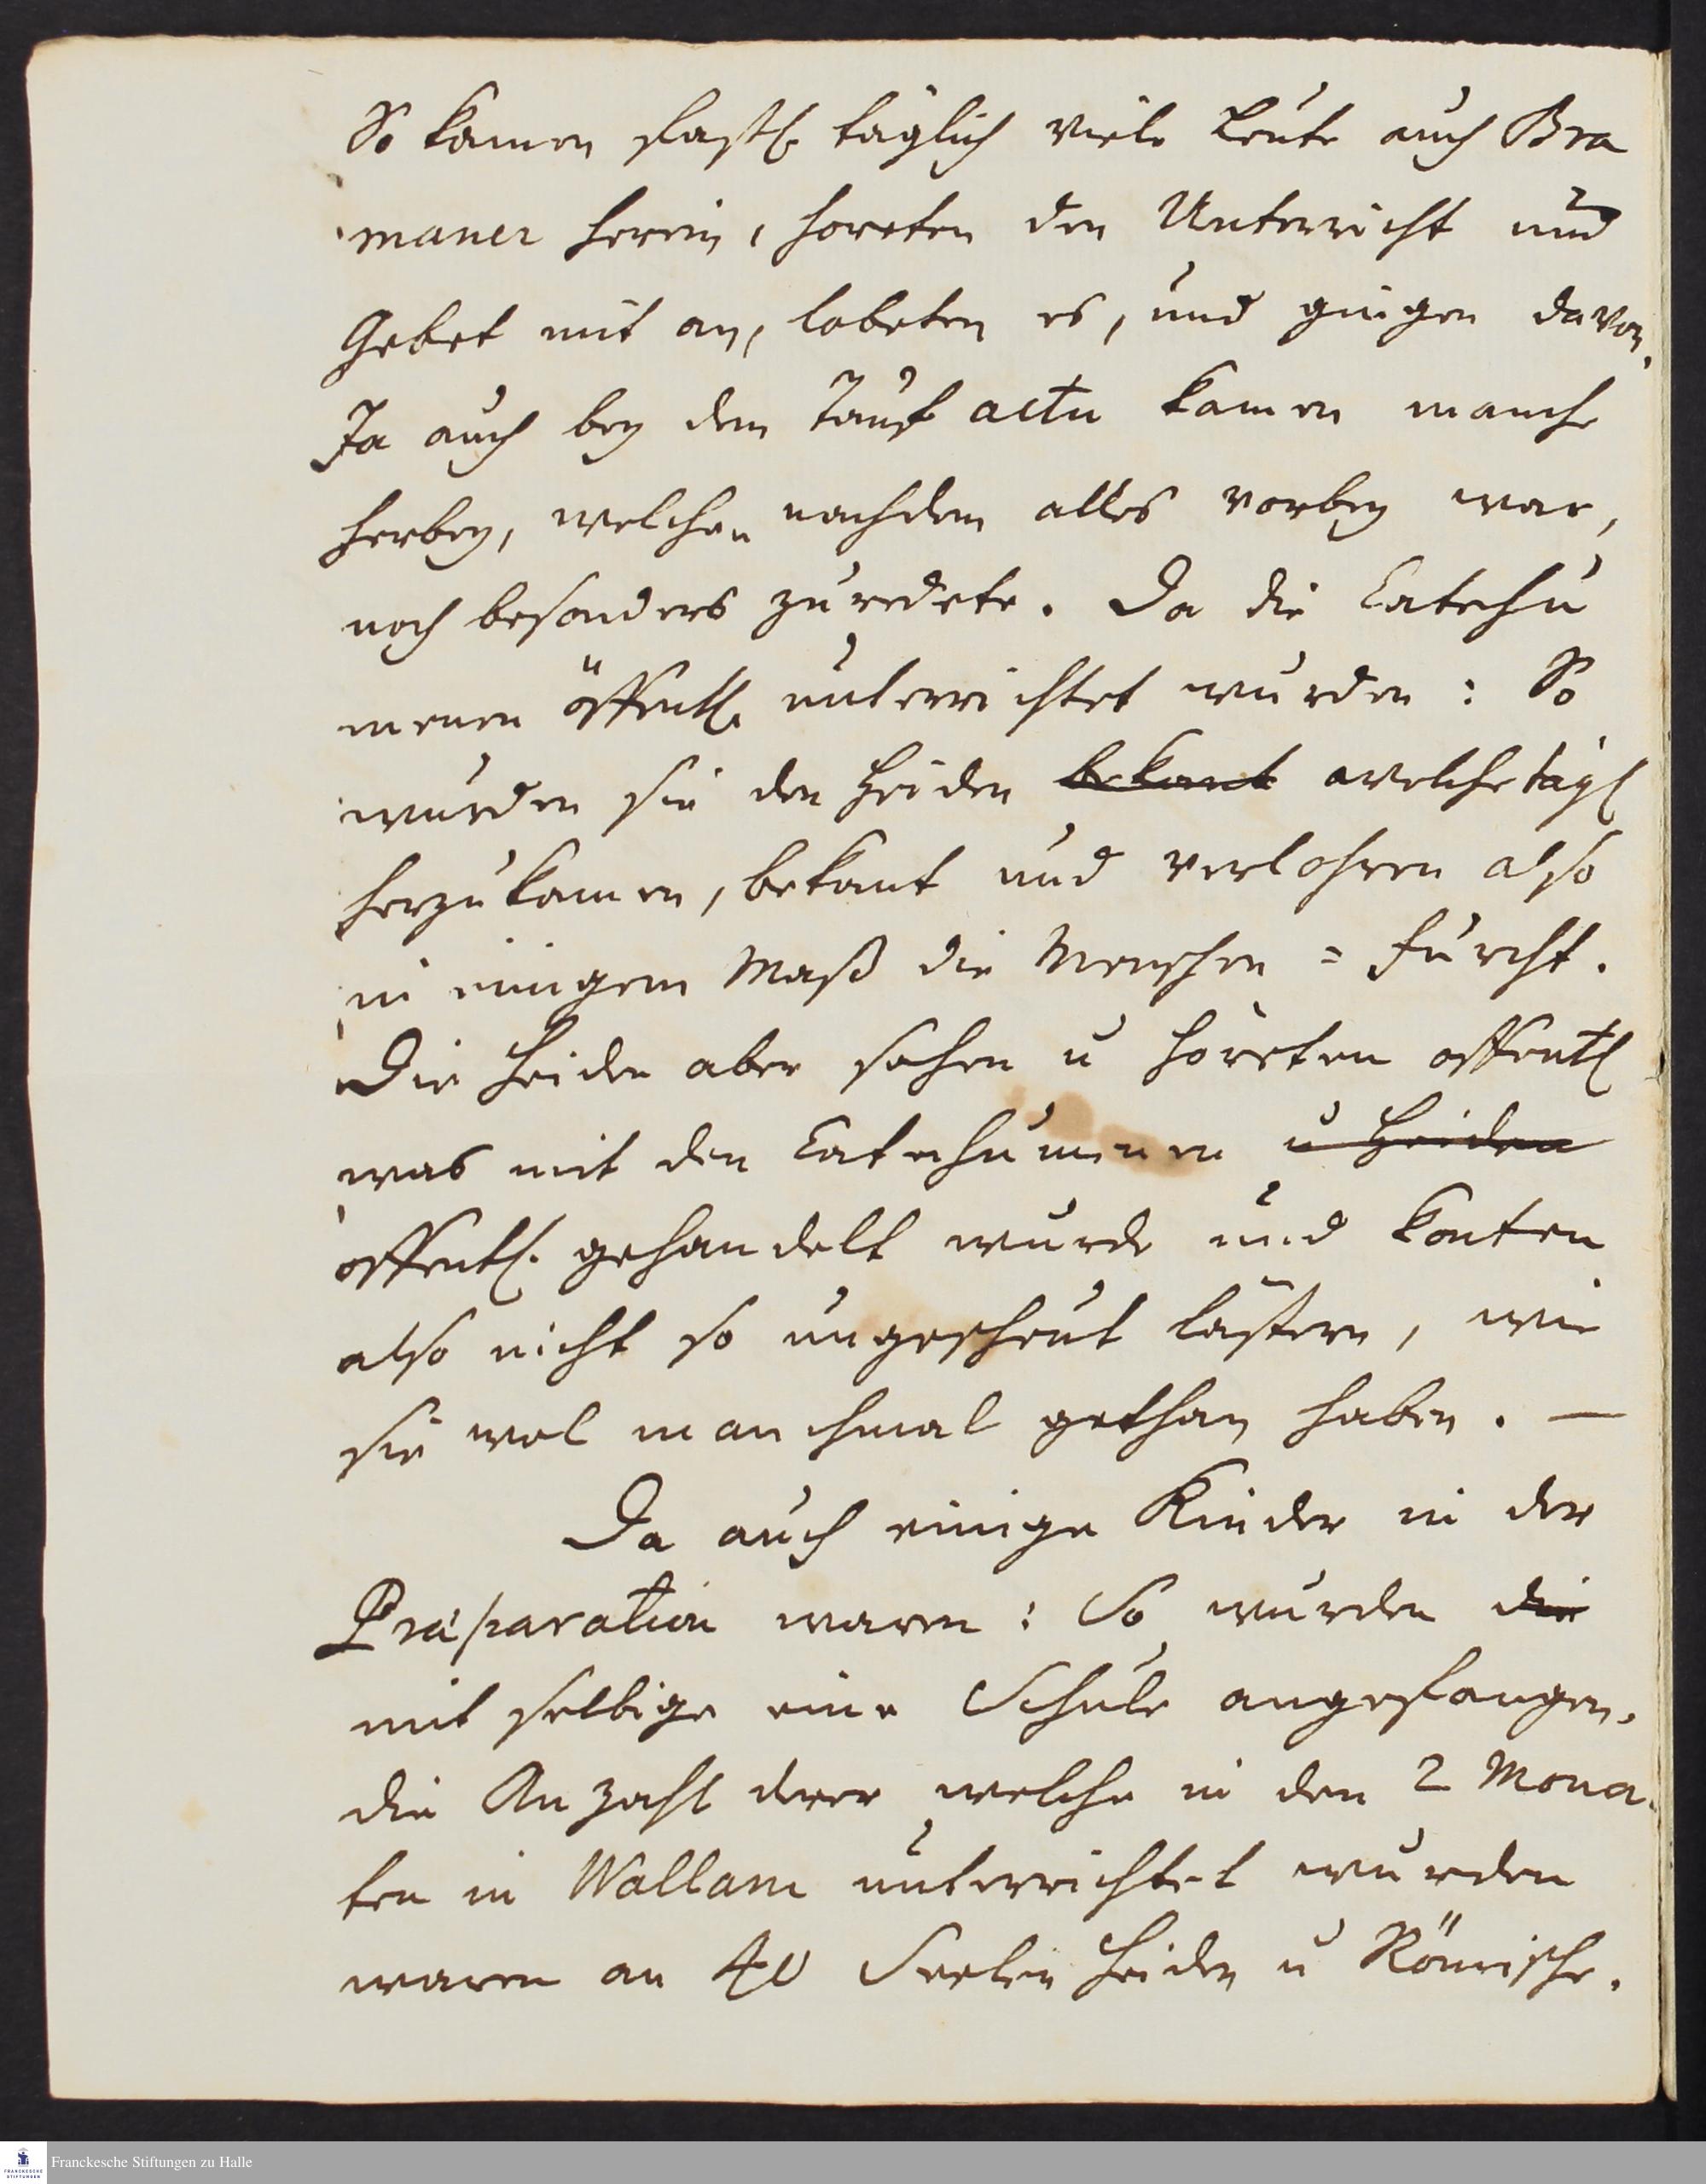 So kamen fastl. täglich viele Leute auch Bra
maner herein, horeten den Unterricht und
Gebet mit an, lobeten es, und gingen davon.
Ja auch bey dem Tauf actu kamen manche
herbey, welchen nachdem alles vorbey war,
noch besonders zuredete. Da die Catechu
menen öffentl. unterrichtet wurden: So
wurden sie den Heiden bekant welche tägl
herzukamen, bekant und verlohren also
in einigem Maß die Menschen = Furcht.
Die Heiden aber sahen u höreten offentl
was mit den Catechumenen u Heiden
offentl. gehandelt wurde und konten
also nicht so ungescheut lästern, wie
sie wol manchmal gethan haben. —
Da auch einige Kinder in der
Præparation waren: So wurden die
mit selbige eine Schule angefangen,
die Anzahl derer welche in den 2 Mona
ten in Wallam unterrichtet wurden
waren an 40 Seelen Heiden u Römische.
Franckesche Stiftungen zu Halle
FRANCKESCHE
STIFTUNGEN